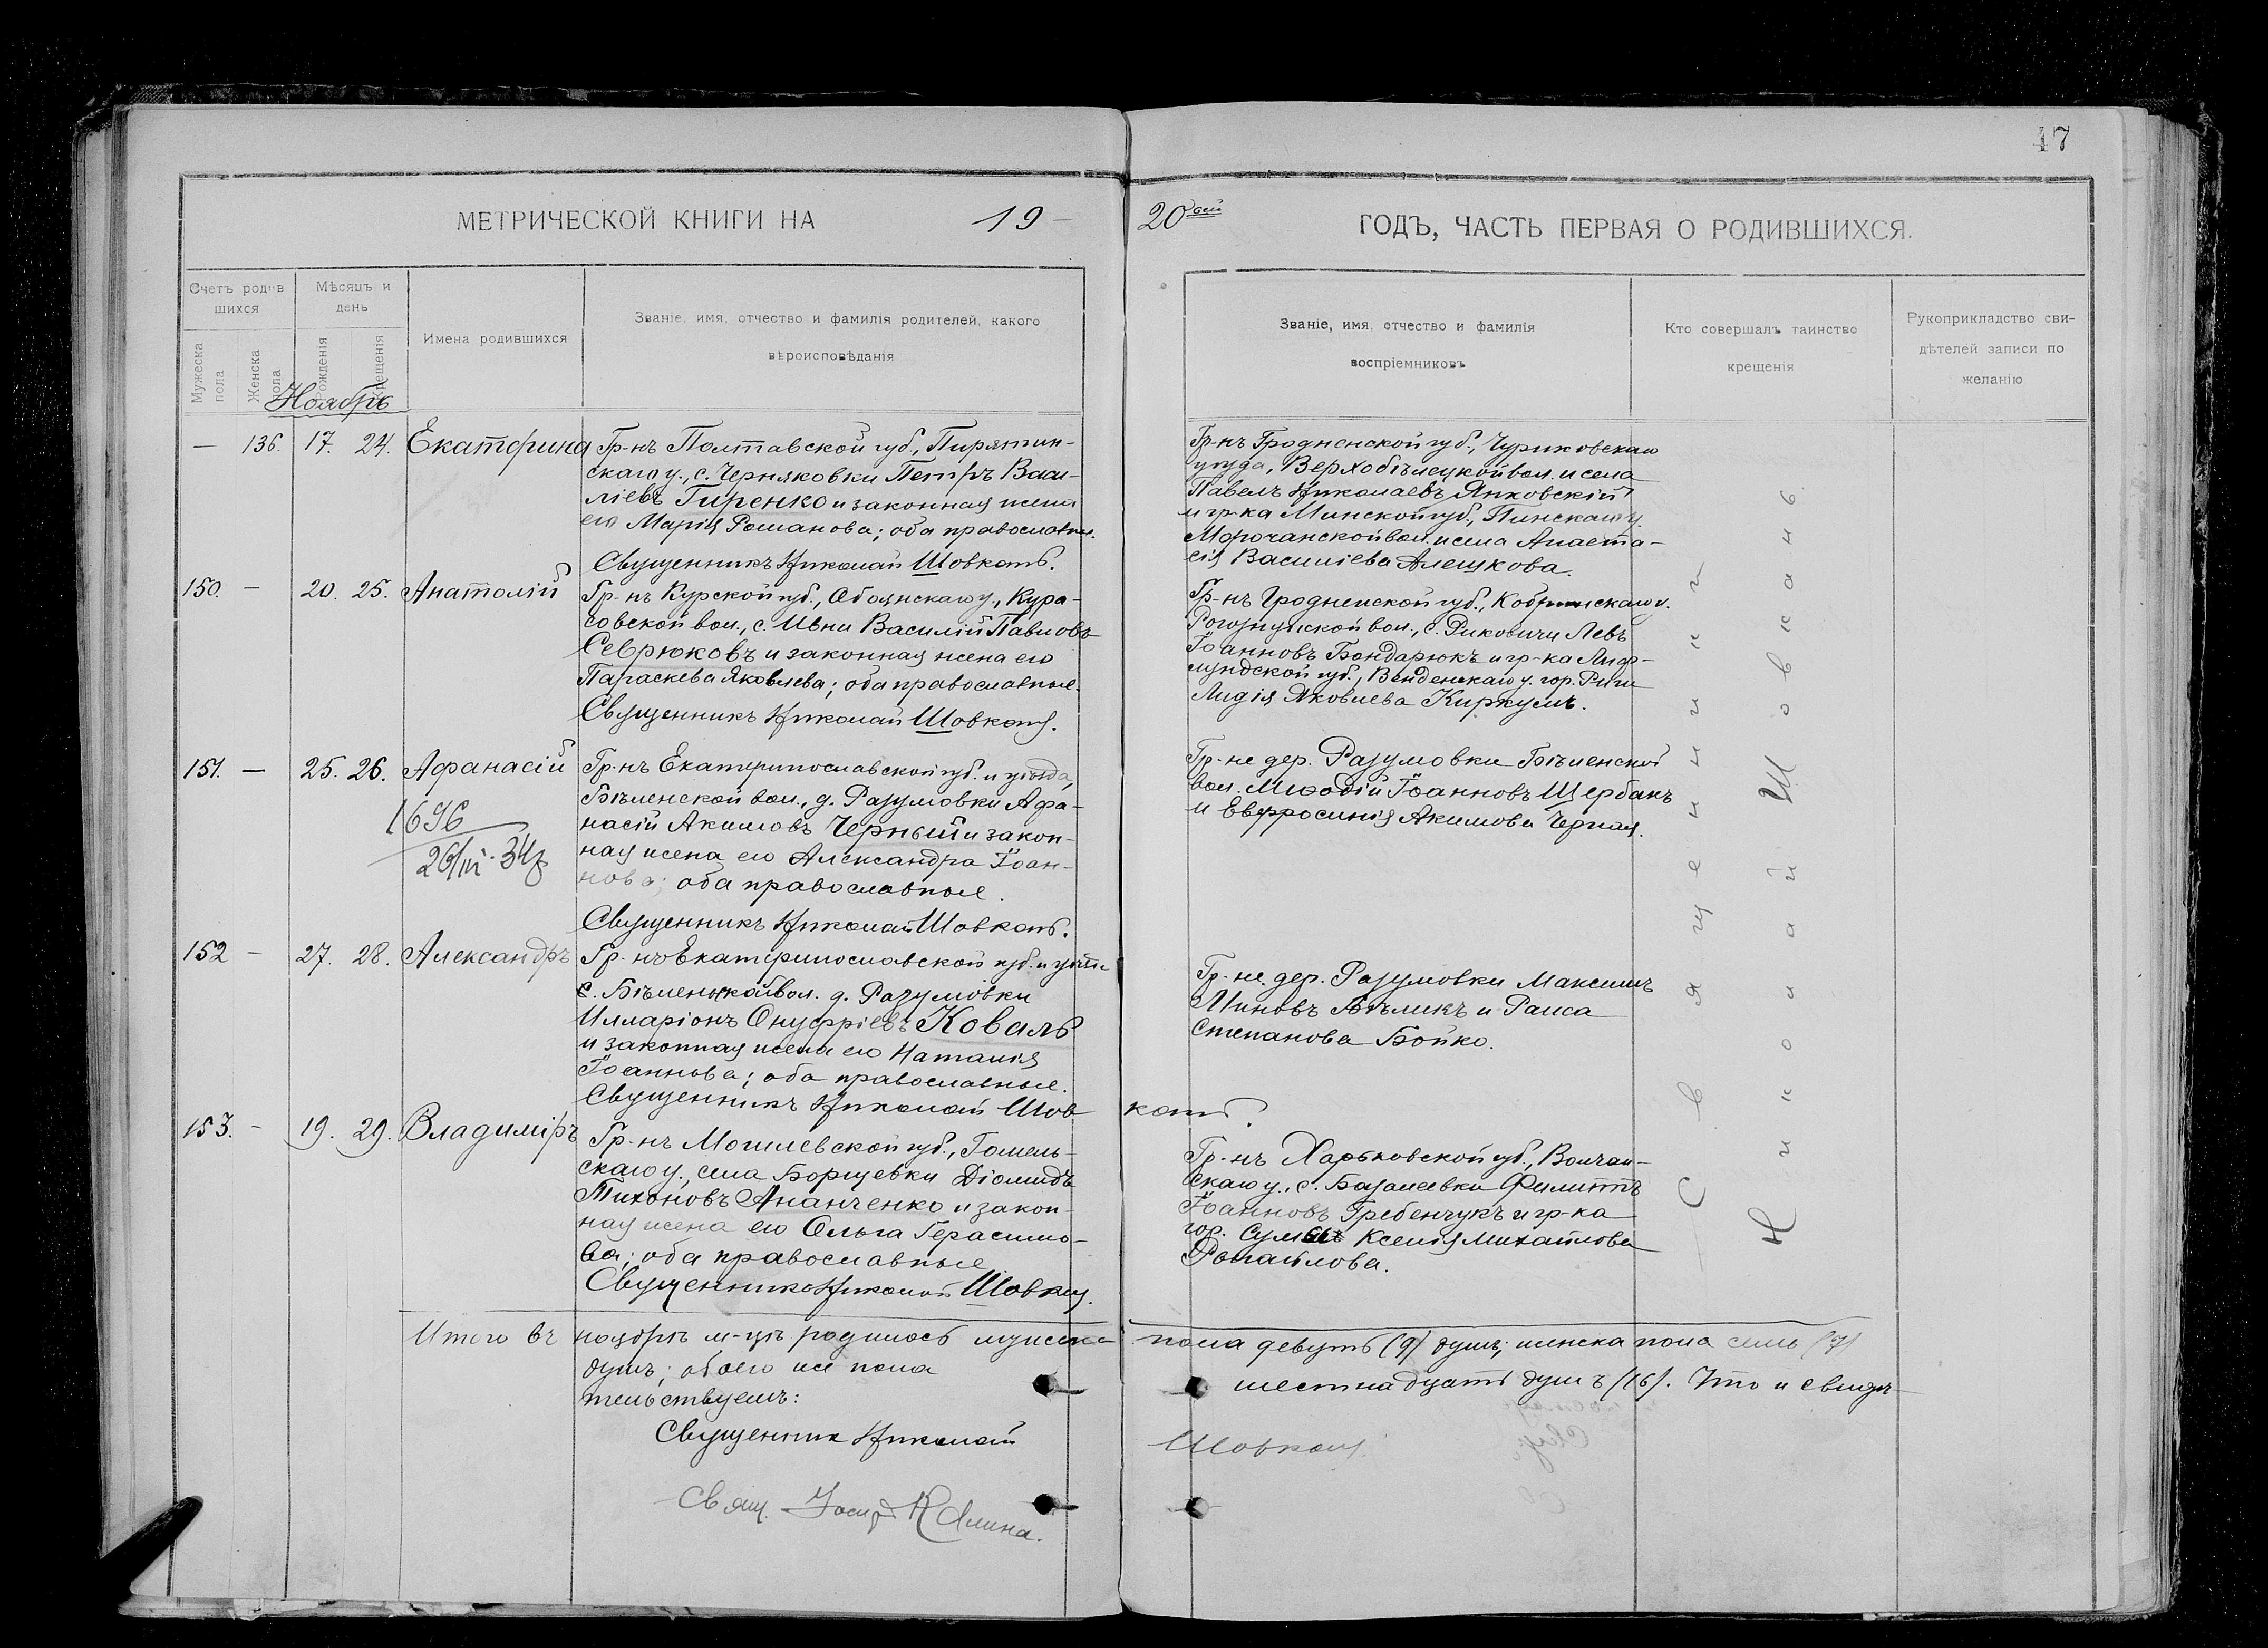 17
МЕТРИЧЕСКОЙ КНИГИ НА 19–
20ый ГОДЪ, ЧАСТЬ ПЕРВАЯ О РОДИВШИХСЯ.
Счетъ родив
шихся
Мужеска
пола
Женска
пола
Мѣсяцъ и
день
Рожденія
Крещенія
Имена родившихся
Званіе, имя, отчество и фамилія родителей, какого
вѣроисповѣданія
Званіе, имя, отчество и фамилія
воспріемниковъ
Кто совершалъ таинство
крещенія
Рукоприкладство сви-
дѣтелей записи по
желанію
Ноябрь
— 136. 17. 24. Екатерина
Гр-нъ Полтавской губ., Пирятин-
скаго у., с. Черняховки Петръ Васи-
ліевъ Гиренко и законная жена
его Марія Романова; оба православные.
Священникъ Николай Шовкопъ.
Гр-нъ Гродненской губ.,
уѣзда, вол. и села
Павелъ Николаевъ Янковскій
и гр-ка Минской губ., Пинскаго у.
Морочанской вол. и села Анаста-
сія Василіева Алешкова.
150. — 20. 25. Анатолій
Гр-нъ Курской губ., Обоянскаго у., Кура-
совской вол., с. Ивни Василій Павловъ
Севрюковъ и законная жена его
Параскева Яковлева; оба православные.
Священникъ Николай Шовкопъ.
Гр-нъ Гродненской губ., Кобринскаго у.
вол., с. Левъ
Іоанновъ Бондарюкъ и гр-ка Лиф-
ляндской губ., Венденскаго у. гор. Риги
Лидія Яковлева Киркумъ.
151. — 25. 26. Афанасій
1696
26/III 34
Гр-нъ Екатеринославской губ. и уѣзда,
Бѣленской вол., д. Разумовки Афа-
насій Акимовъ Черный и закон-
ная жена его Александра Іоан-
нова; оба православные.
Священникъ Николай Шовкопъ.
Гр-не дер. Разумовки Бѣленской
вол. Меѳодій Іоанновъ Щербакъ
и Евфросинія Акимова Черная.
152 — 27. 28. Александръ
Гр-нъ Екатеринославской губ. и уѣзда
Бѣленской вол. д. Разумовки
Илларіонъ Онуфріевъ Коваль
и законная жена его Наталія
Іоаннова; оба православные.
Священникъ Николай Шовкопъ.
Гр-не дер. Разумовки Максимъ
Миновъ Бѣликъ и Раиса
Степанова Бойко.
153. — 19. 29. Владиміръ
Гр-нъ Могилевской губ., Гомель-
скаго у., села Борщевки Діомидъ
Тихоновъ Ананченко и закон-
ная жена его Ольга Герасимо-
ва; оба православные.
Священникъ Николай Шовкопъ.
Гр-нъ Харьковской губ., Волчан-
скаго у., с. Базалеевки Филиппъ
Іоанновъ Гребенчукъ и гр-ка
гор. Сумы Ксенія Михайлова

Священникъ
Николай Шовкопъ
Итого въ ноябрѣ м-цѣ родилось мужска пола девять (9) душъ; женска пола семь (7)
душъ; обоего же пола шестнадцать душъ (16). Что и свидѣ-
тельствуемъ:
Священникъ Николай Шовкопъ
Свящ. Іосифъ Калина.